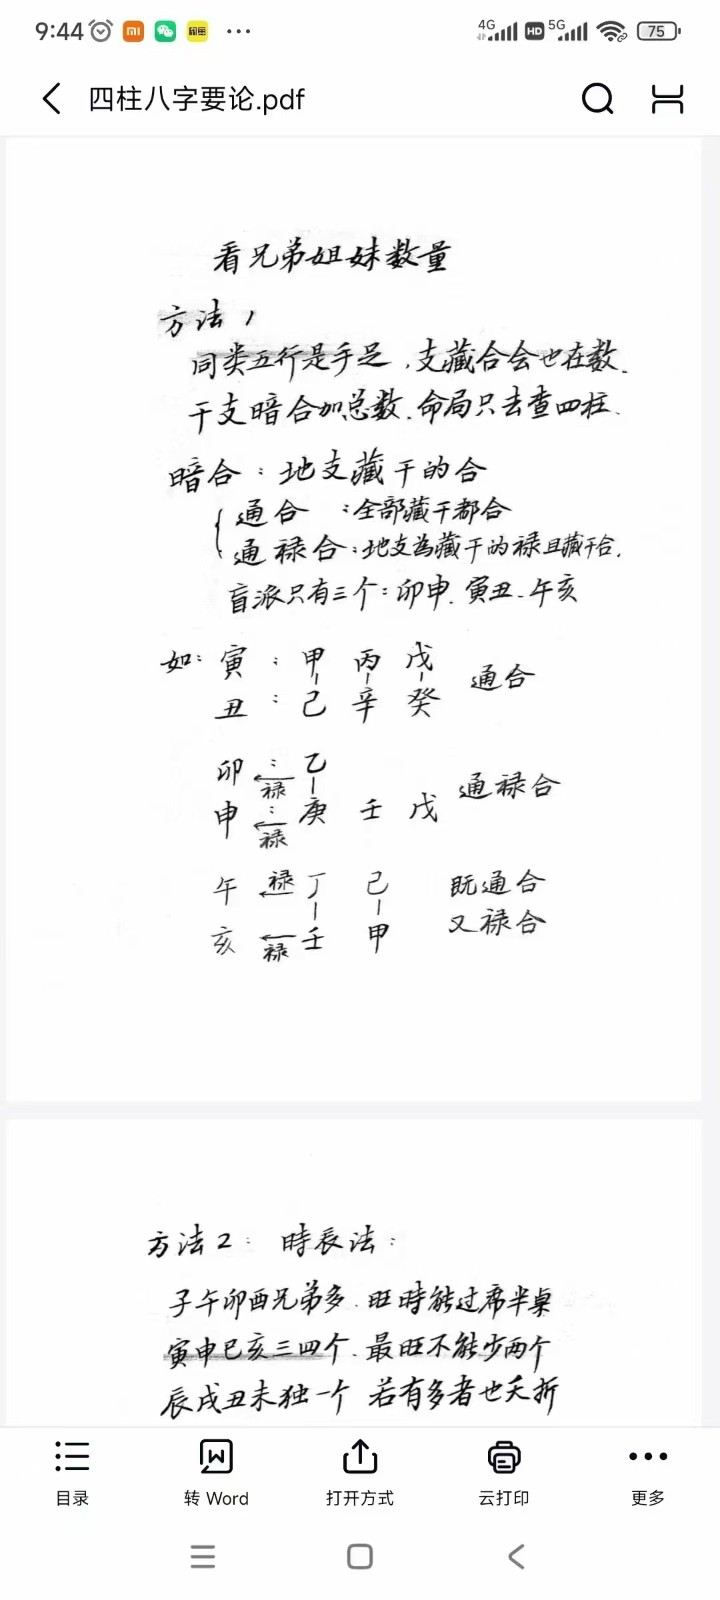 9:44
4G HD 5G 75
四柱八字要论.pdf
看兄弟姐妹数量
方法1
同类五行是手足,支藏合会也在数.
干支暗合加总数.命局只去查四柱.
暗合:地支藏干的合
通合:全部藏干都合
通禄合:地支為藏干的禄且藏干合.
盲派只有三个:卯申.寅丑.午亥
如:寅:甲 丙 戊
通合
丑:己 辛 癸
卯 禄 乙
通禄合
申 禄 庚 壬 戊
午 禄 丁 己 既通合
亥 禄 壬 甲 又禄合
方法2: 時辰法:
子午卯酉兄弟多.旺時能过席半桌
寅申巳亥三四个.最旺不能少两个
辰戌丑未独一个 若有多者也夭折
目录 转 Word 打开方式 云打印 更多